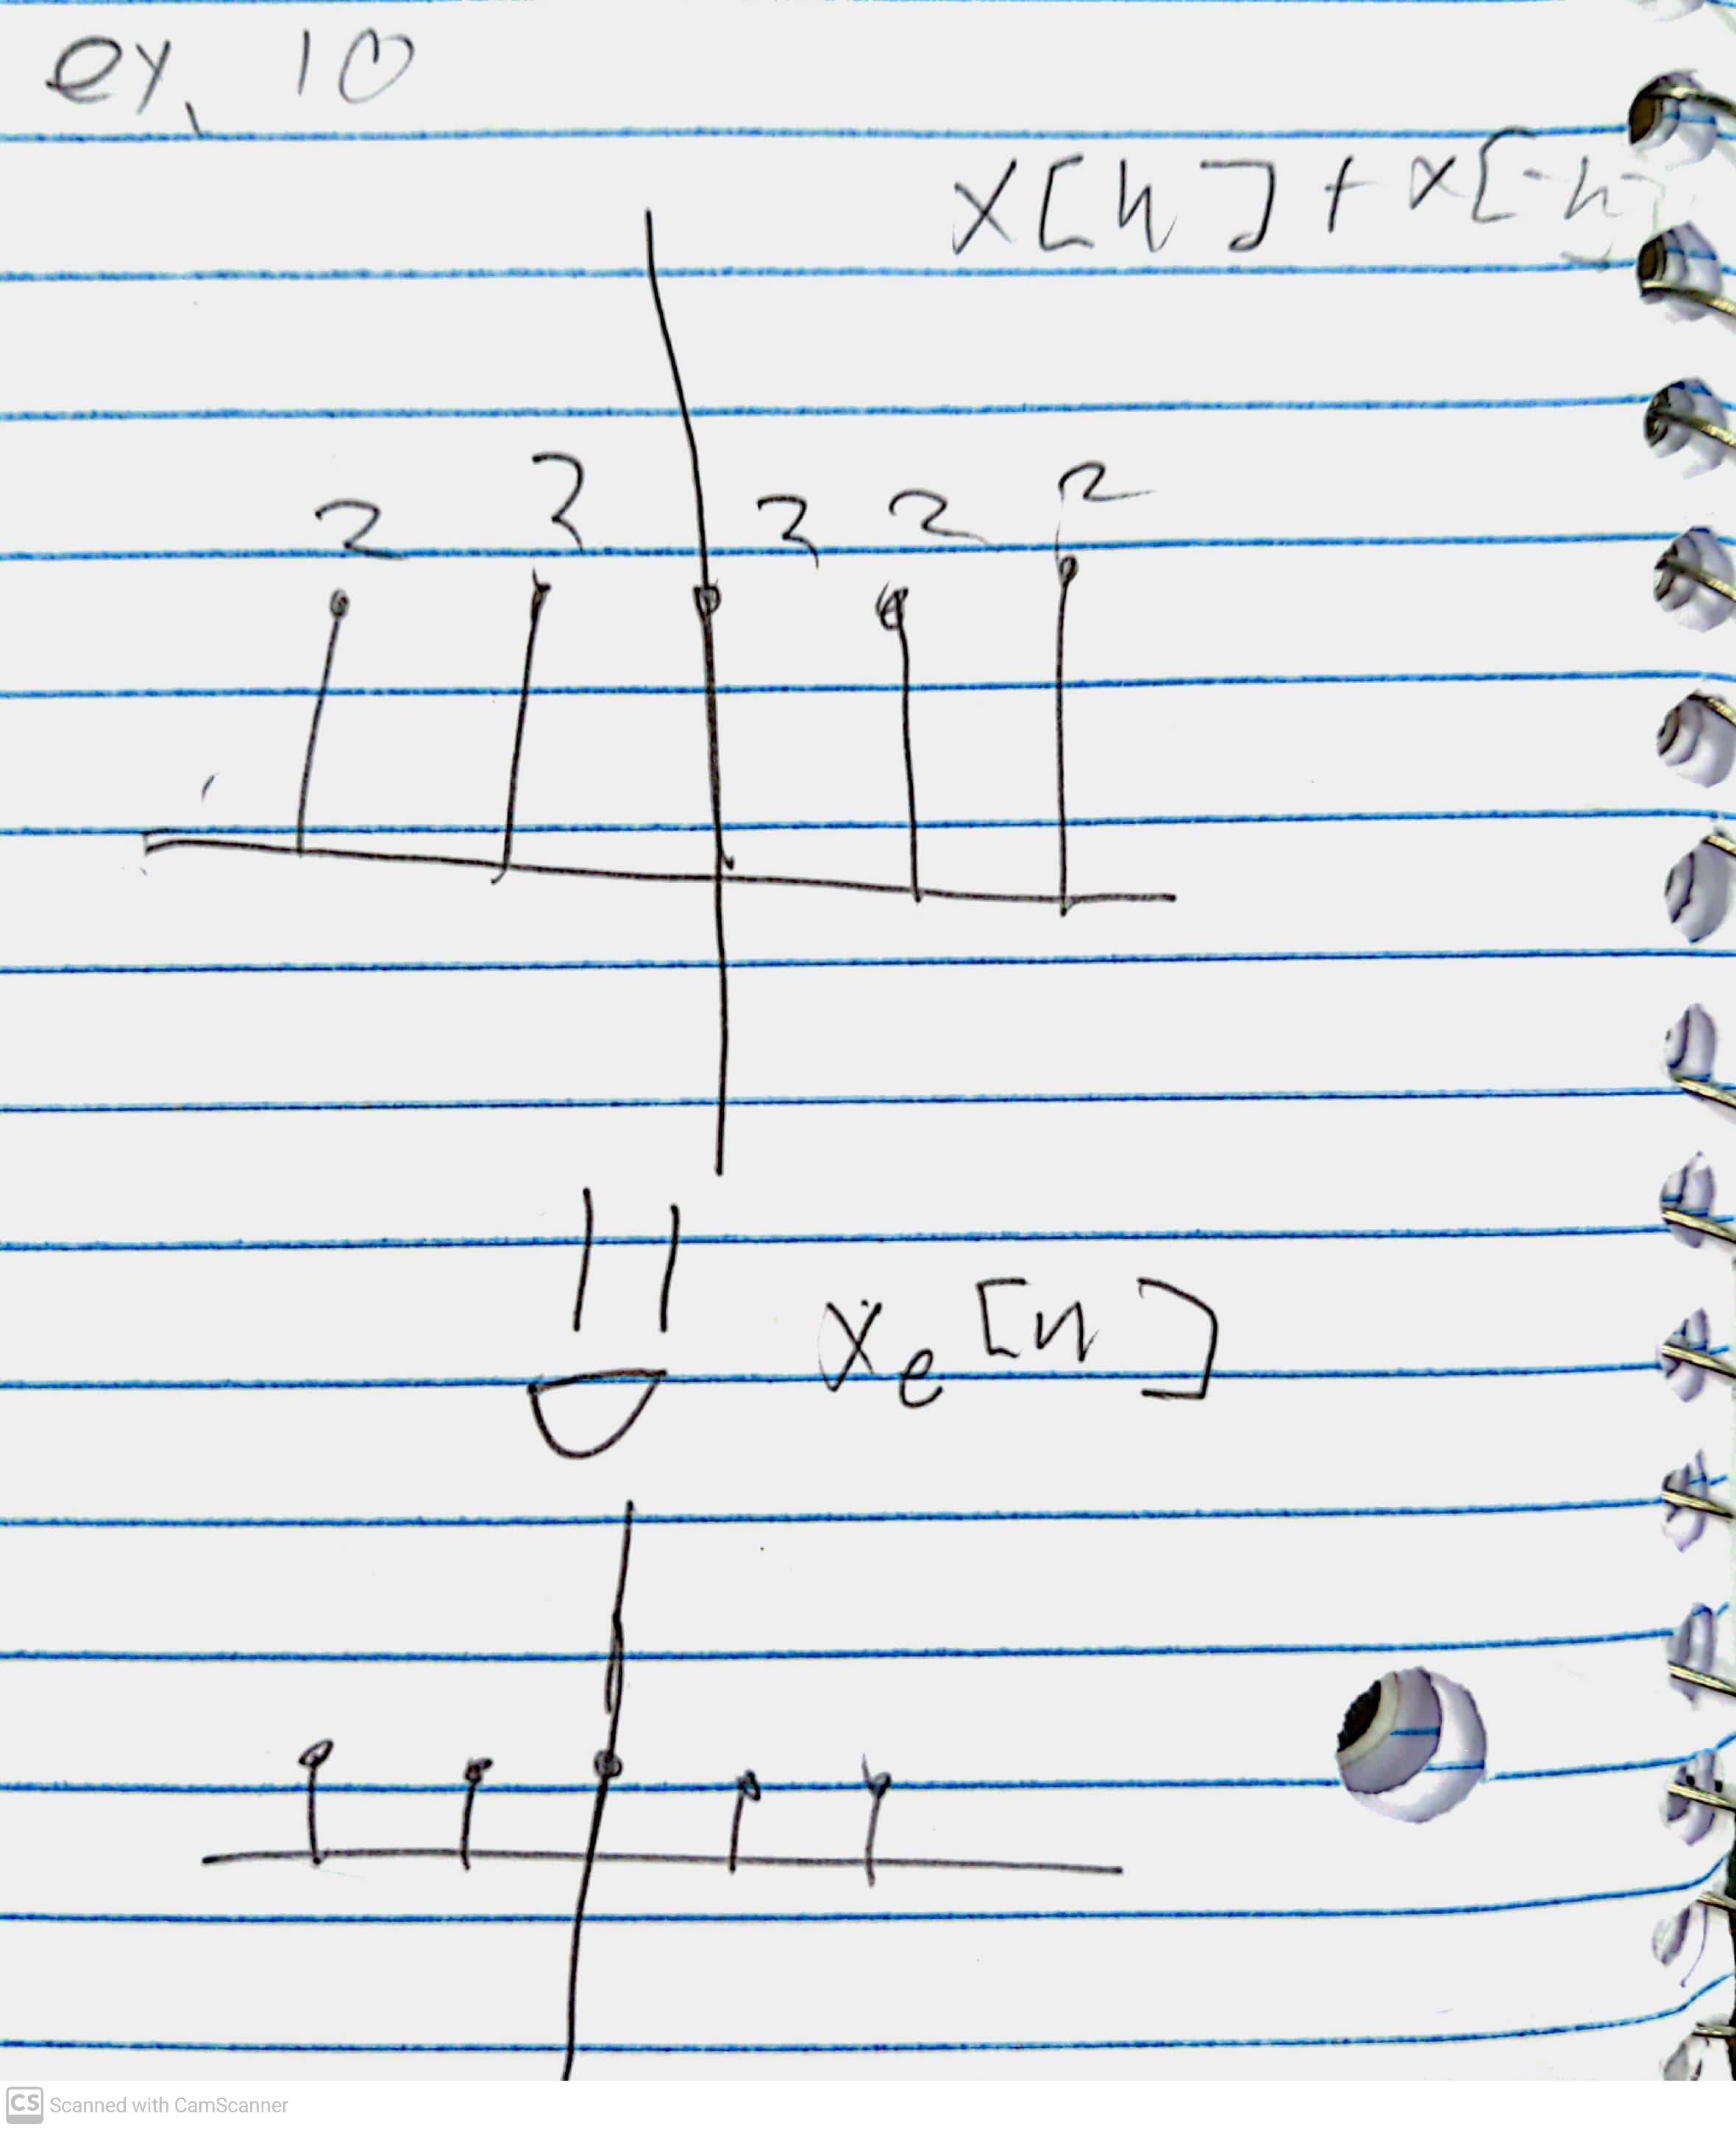 ex. 10
x[n] + x[-n]
2 2 2 2 2
xe[n]
CS Scanned with CamScanner